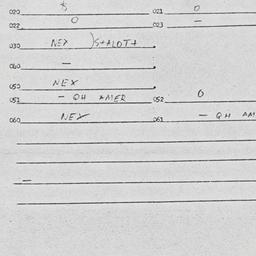 020 5 021 0
022 0 023 -
030 NEX
040 -
050 NEX
051 - QH AMER 052 0
060 NEX 061 - QH AM
-